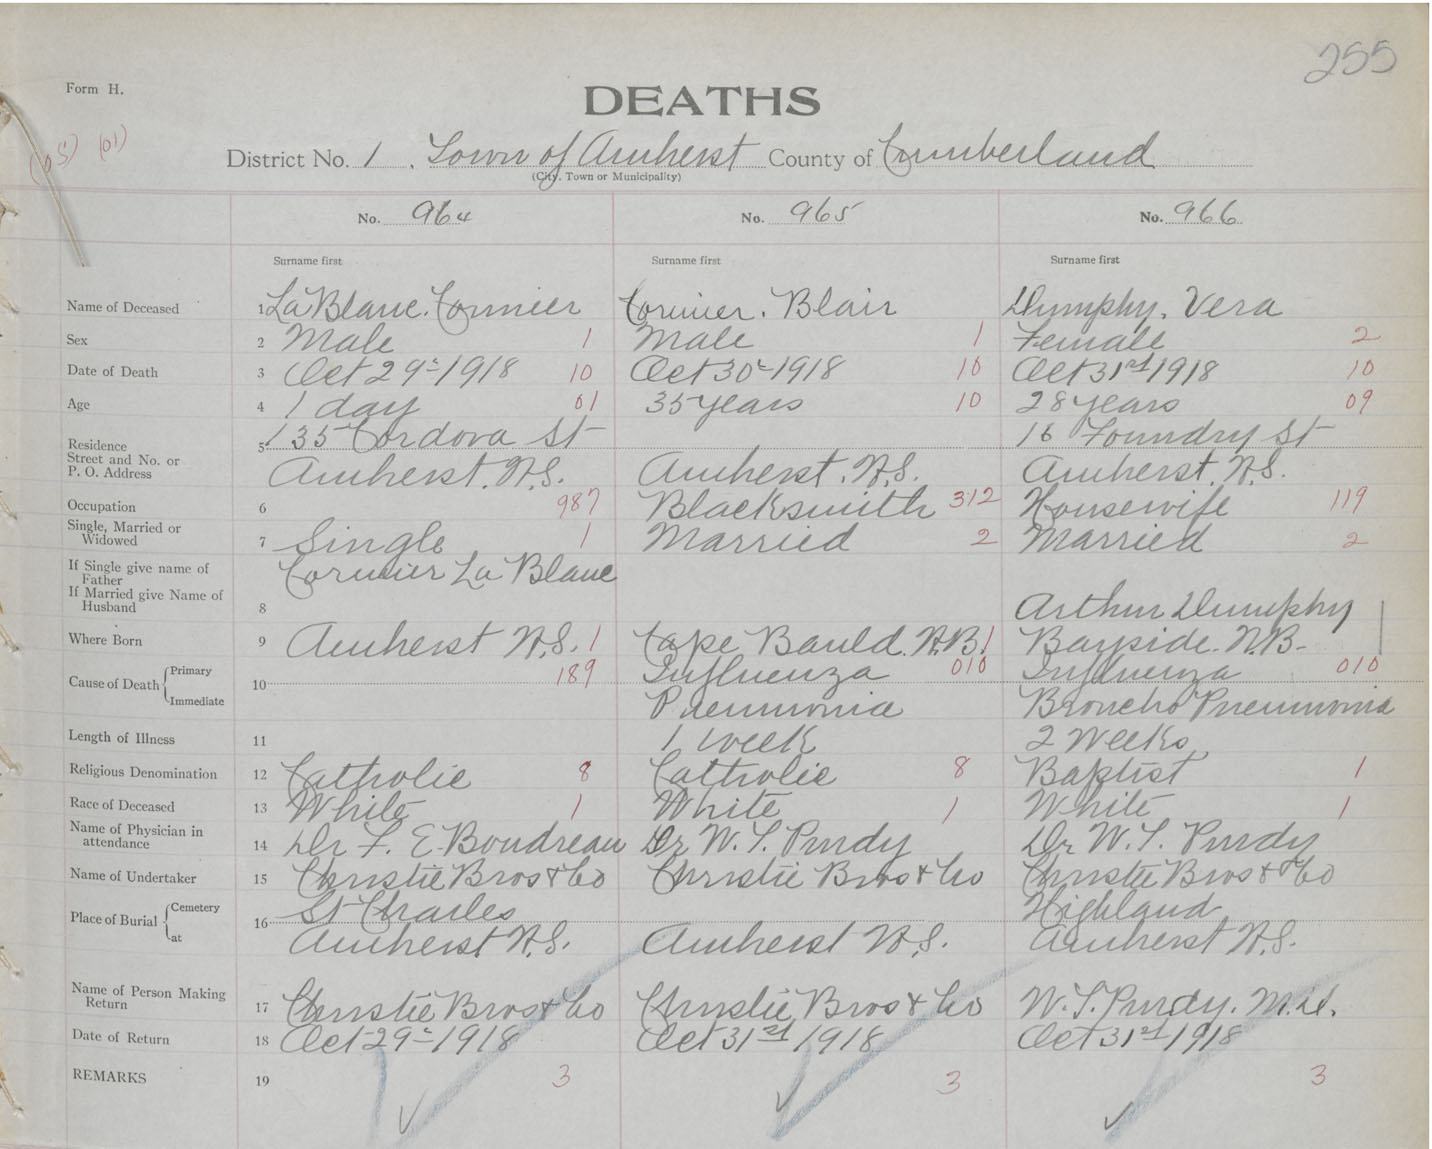 255
Form H.
DEATHS
(05) (01)
District No. 1. Town of Amherst County of Cumberland
(City, Town or Municipality)
No. 964 No. 965 No. 966
Surname first Surname first Surname first
Name of Deceased 1 La Blanc. Cormier Cormier. Blair Dumphy. Vera
Sex 2 Male 1 Male 1 Female 2
Date of Death 3 Oct 29th 1918 10 Oct 30th 1918 10 Oct 31st 1918 10
Age 4 1 day 01 35 years 10 28 years 09
Residence 5 135 Cordova St 16 Foundry St
Street and No. or
P. O. Address Amherst. N.S. Amherst. N.S. Amherst. N.S.
Occupation 6 987 Blacksmith 312 Housewife 119
Single, Married or
Widowed 7 Single 1 Married 2 Married 2
If Single give name of
Father Cormier La Blanc
If Married give Name of
Husband 8 Arthur Dumphy
Where Born 9 Amherst N.S. 1 Cape Bauld. N.B. 1 Bayside. N.B.
Cause of Death Primary 10 189 Influenza 010 Influenza 010
Immediate Pneumonia Broncho Pneumonia
Length of Illness 11 1 week 2 Weeks
Religious Denomination 12 Catholic 8 Catholic 8 Baptist 1
Race of Deceased 13 White 1 White 1 White 1
Name of Physician in
attendance 14 Dr F. E. Boudreau Dr W. T. Purdy Dr W. T. Purdy
Name of Undertaker 15 Christie Bros & Co Christie Bros & Co Christie Bros & Co
Place of Burial Cemetery 16 St Charles Highland
at Amherst N.S. Amherst N.S. Amherst N.S.
Name of Person Making
Return 17 Christie Bros & Co Christie Bros & Co W. T. Purdy. M.D.
Date of Return 18 Oct 29th 1918 Oct 31st 1918 Oct 31st 1918
REMARKS 19 3 3 3